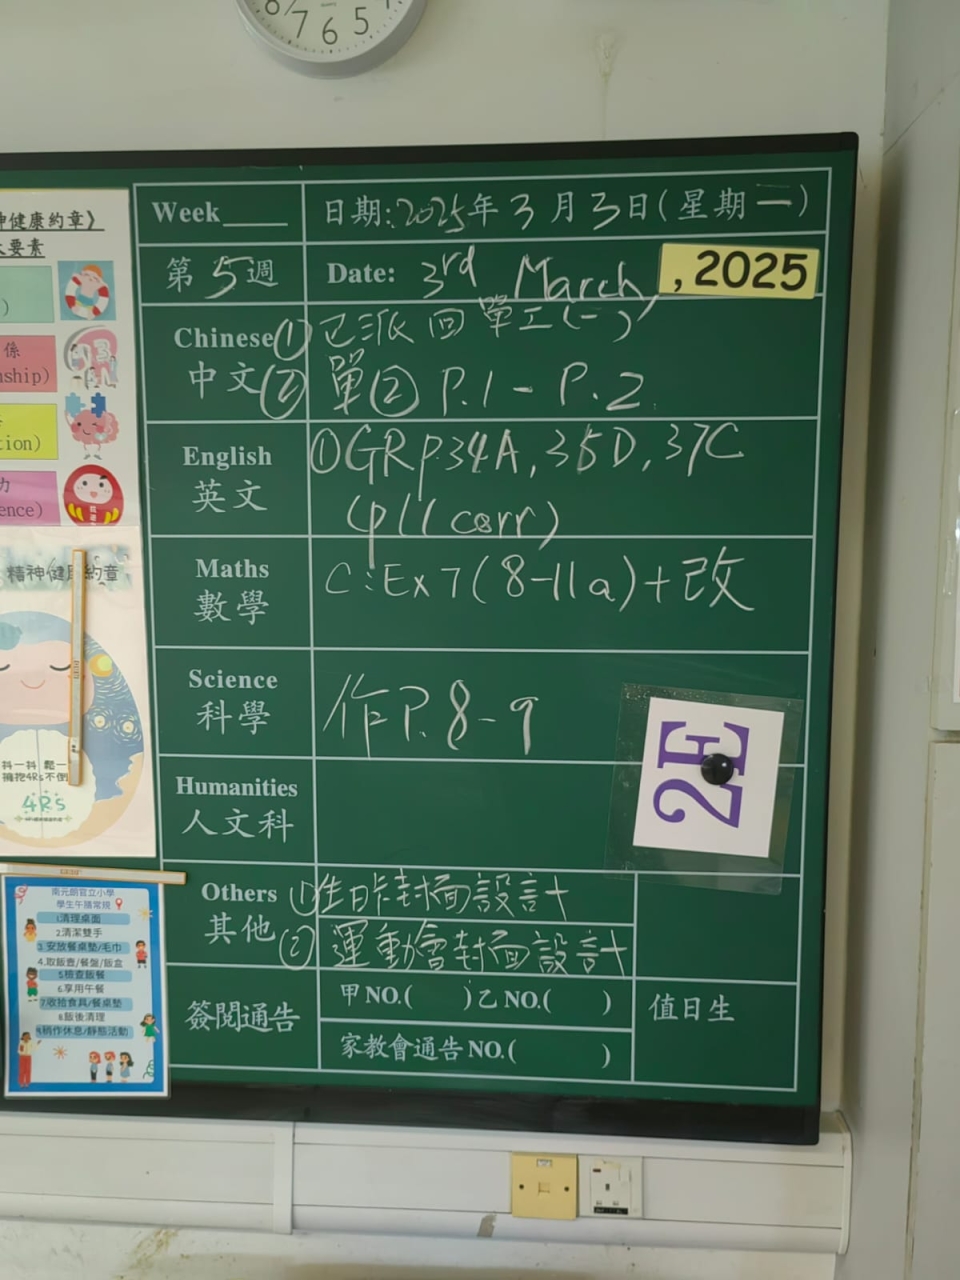 8 7 6 5
神健康約章》
要素
係
nship)
tion)
力
ence)
精神健康約章
抖一抖 鬆一
擁抱4Rs不倒
4Rs
南元朗官立小學
學生午膳常規
1清理桌面
2.清潔雙手
3 安放餐桌墊/毛巾
4.取飯壺/餐盤/飯盒
5檢查飯餐
6.享用午餐
7.收拾食具/餐桌墊
8.飯後清理
9.稍作休息/靜態活動
Week____ 日期:2025年3月3日(星期一)
第5週 Date: 3rd March, ,2025
Chinese ① 已派回單工(一)
中文 ② 單② P.1 - P.2
English ① GR p.34A, 35D, 37C
英文 (p11 corr)
Maths C: Ex 7 (8-11a) + 改
數學
Science 作 P. 8 - 9
科學
2E
Humanities
人文科
Others ① 生日咭封面設計
其他 ② 運動會封面設計
簽閱通告 甲NO.( )乙NO.( ) 值日生
家教會通告NO.( )